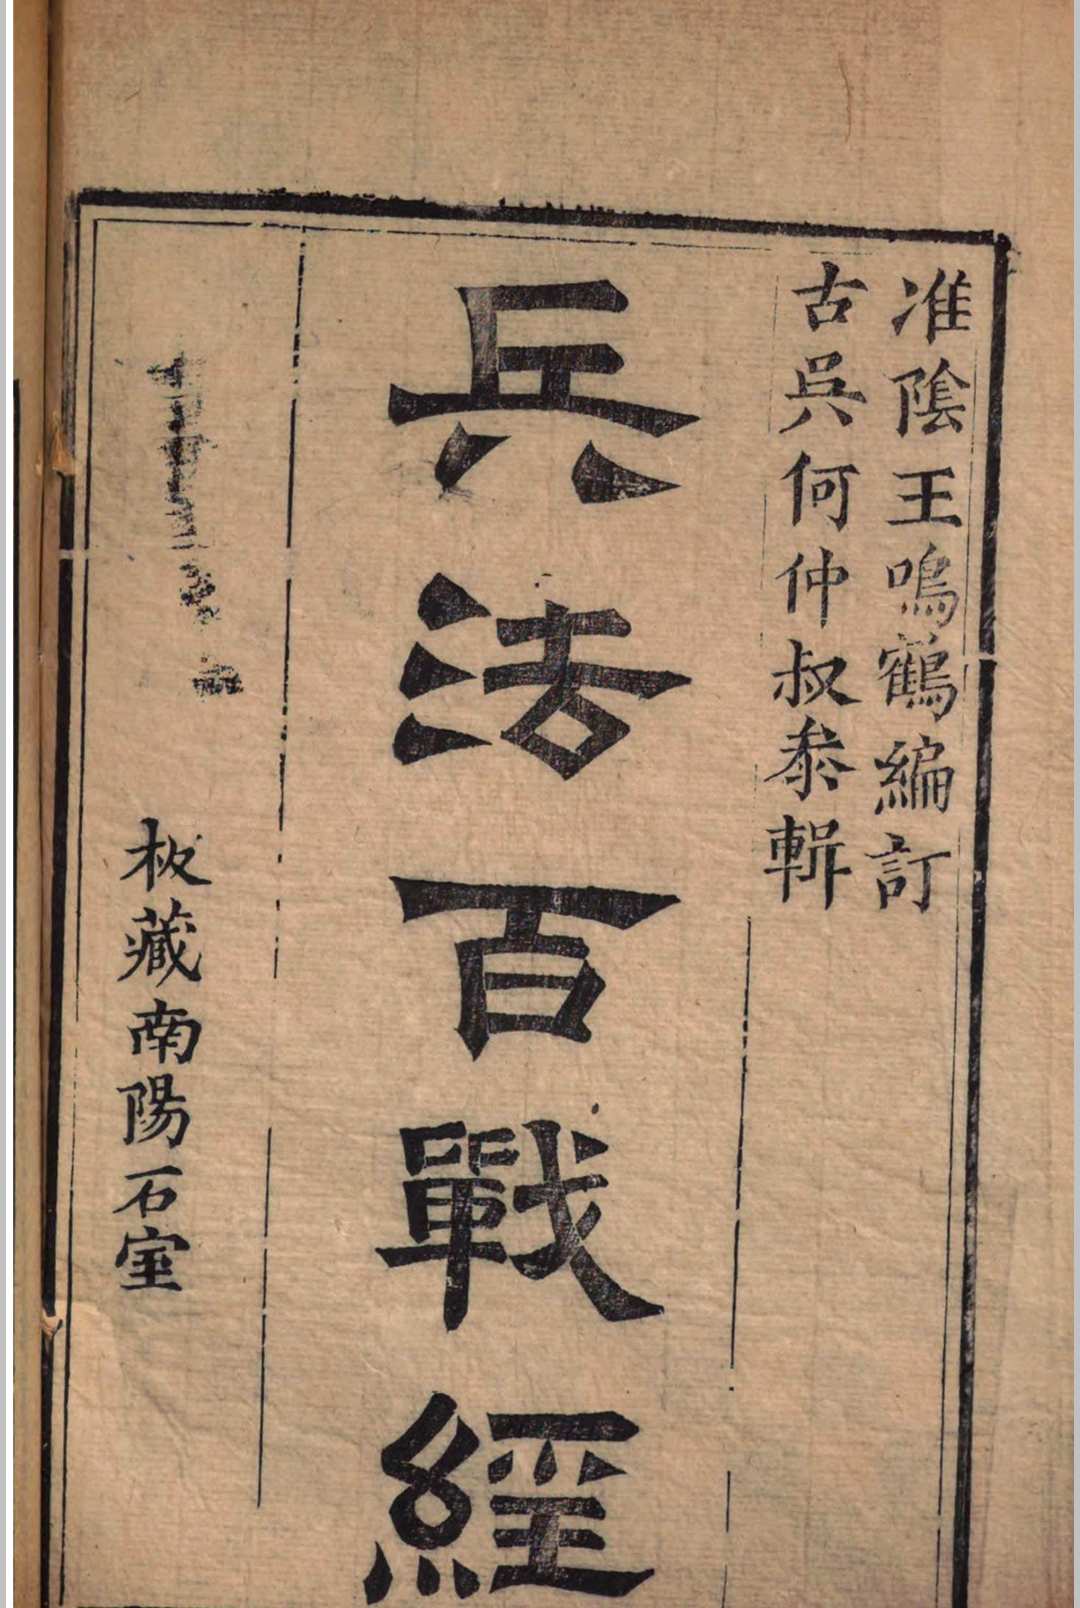 准陰王鳴鶴編訂
古吳何仲叔叅輯
兵法百戰經
板藏南陽石室